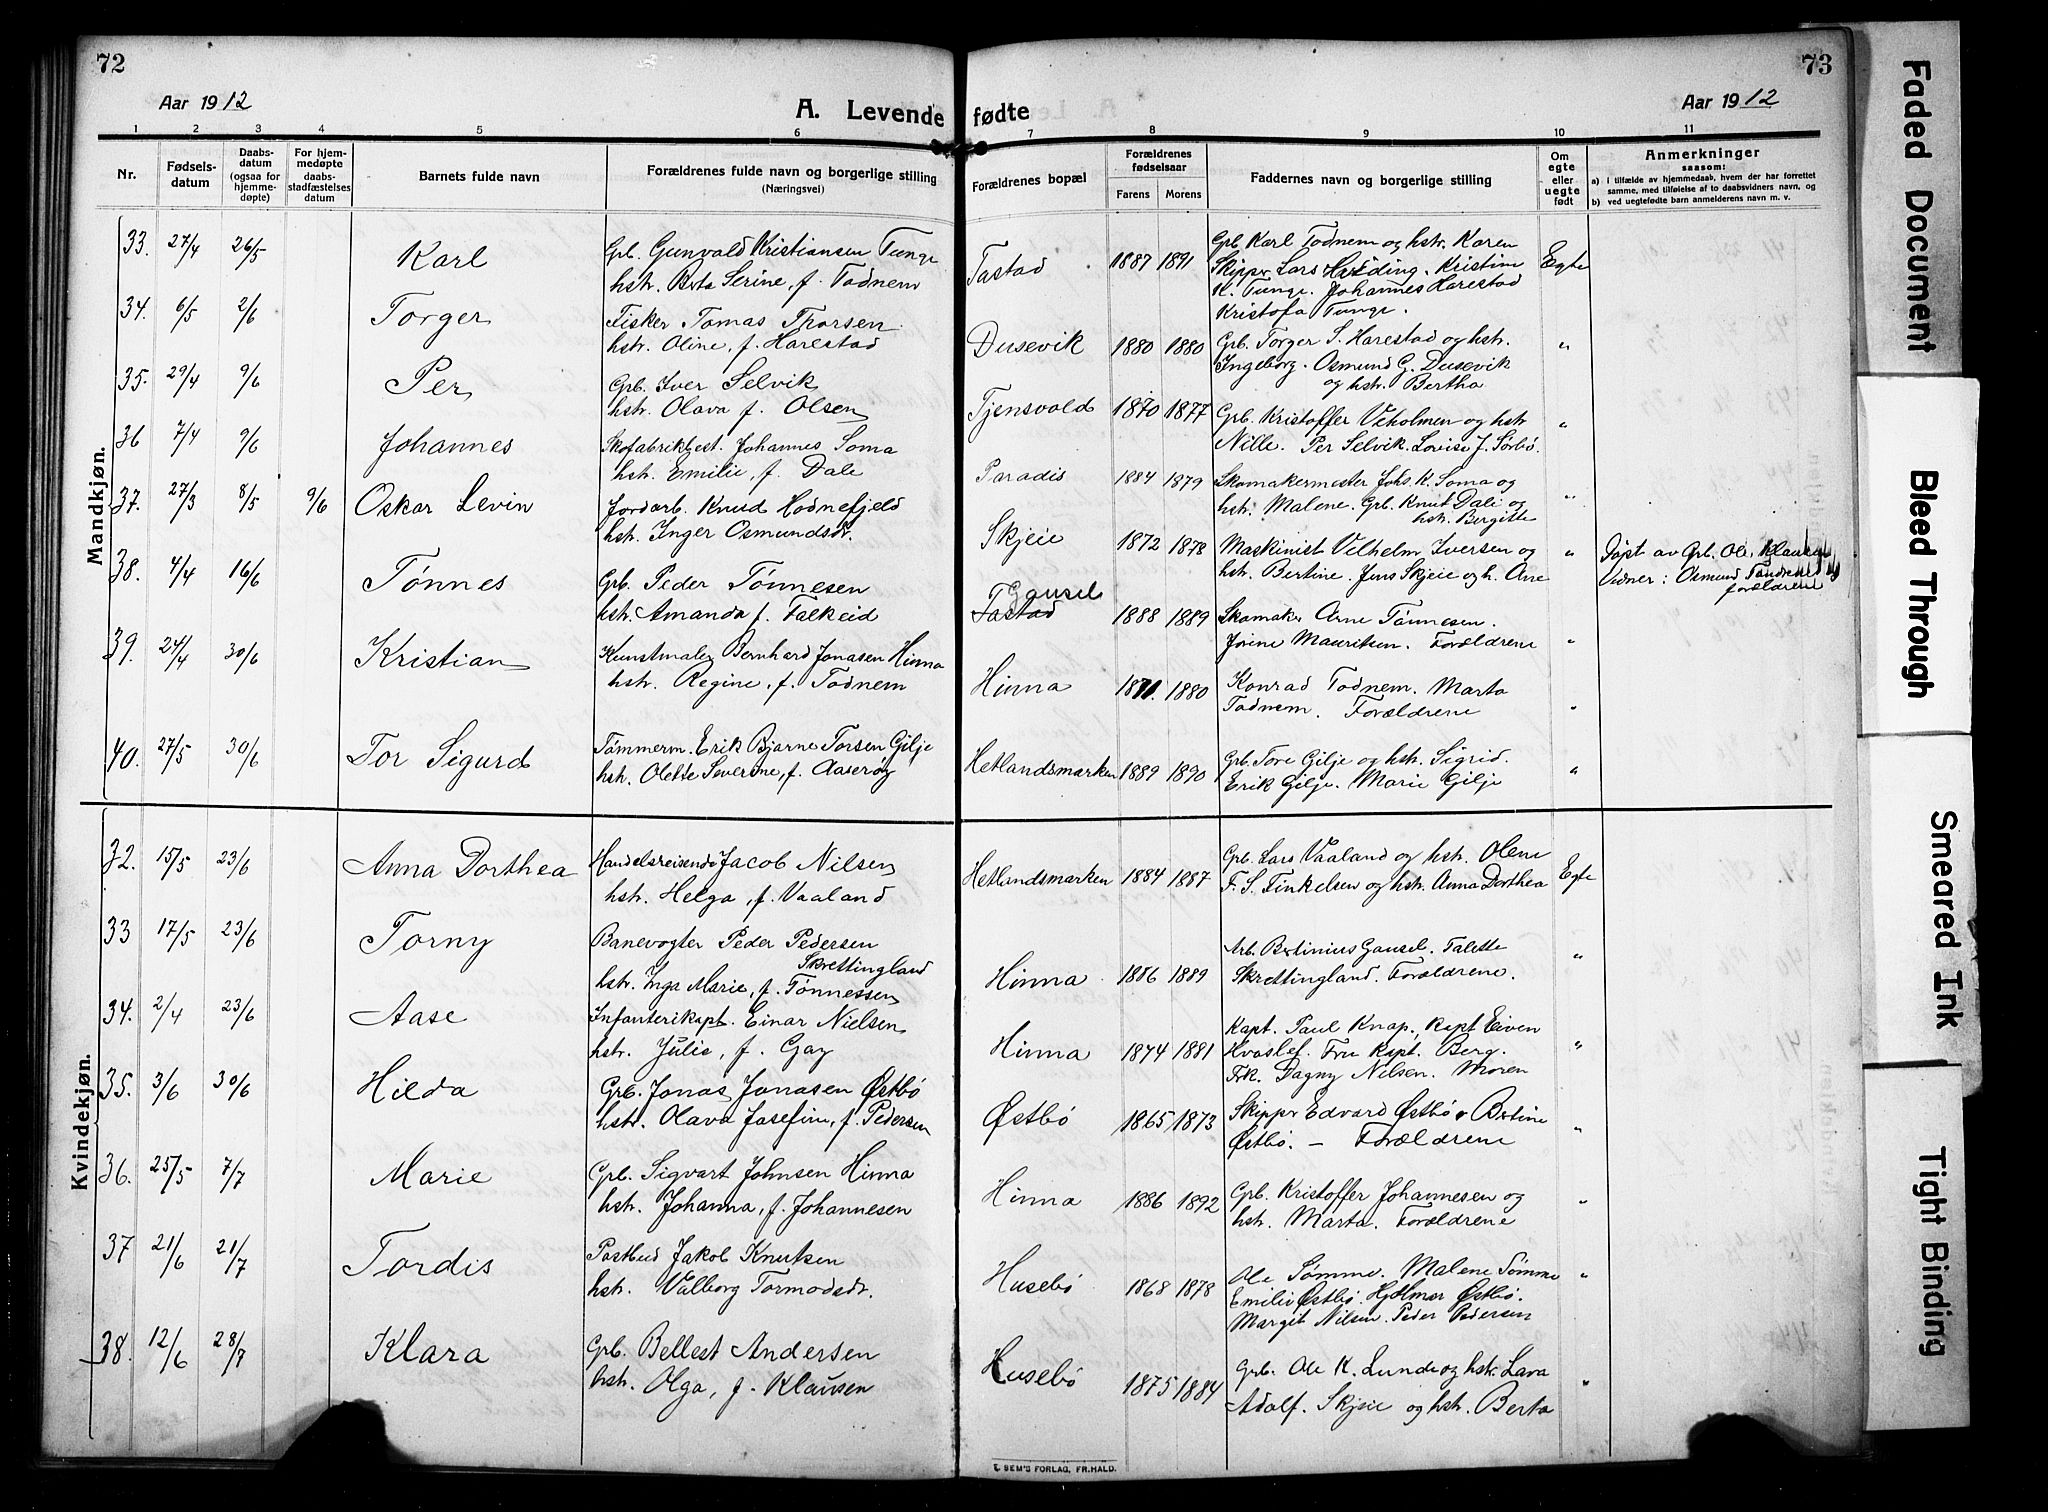 72
73
Aar 1912
A. Levende fødte
Aar 1912
1 2 3 4 5 6 7 8 9 10 11
Nr.
Fødselsdatum
Daabsdatum (ogsaa for hjemmedøpte)
For hjemmedøpte daabsstadfæstelses datum
Barnets fulde navn
Forældrenes fulde navn og borgerlige stilling
(Næringsvei)
Forældrenes bopæl
Forældrenes fødselsaar
Farens Morens
Faddernes navn og borgerlige stilling
Om egte eller uegte født
Anmerkninger
saasom:
a) i tilfælde av hjemmedaab, hvem der har forrettet
samme, med tilføielse af to daabsvidners navn, og
b) ved uegtefødte barn anmelderens navn m. v.
Mandkjøn.
33. 27/4 26/5 Karl Grb. Gunvald Kristiansen Tunge
hstr. Berta Serine, f. Todnem
Tastad 1887 1891 Grb. Karl Todnem og hstr. Karen
Skipper Lars Harding. Kristine
K. Tunge. Johannes Harestad
Kristofa Tunge.
Egte
34. 6/5 2/6 Torger Fisker Tomas Thorsen
hstr. Oline, f. Harestad
Dusevik 1880 1880 Grb. Torger S. Harestad og hstr.
Ingeborg. Osmund G. Dusevik
og hstr. Bertha
"
35. 29/4 9/6 Per Grb. Iver Selvik
hstr. Olava f. Olsen
Tjensvold 1870 1877 Grb. Kristoffer Veholmen og hstr
Nille. Per Selvik. Lovise J. Sörbö.
"
36 7/4 9/6 Johannes Skofabrikbest. Johannes Soma
hstr. Emilie, f. Dale
Paradis 1884 1879 Skomakermester Johs. K. Soma og
hstr. Malene. Grb. Knut Dale og
hstr. Bergitte
"
37. 27/3 8/5 9/6 Oskar Levin Jordarb. Knud Hodnefjeld
hstr. Inger Osmundsdr.
Skjeie 1872 1878 Maskinist Vilhelm Iversen og
hstr. Bertine. Jens Skjeie og h. Ane
" Döpt av Grb. Ole Klausen
Vidner: Osmund
forældrene
38. 4/4 16/6 Tönnes Grb. Peder Tönnesen
hstr. Amanda f. Falkeid
Gausel
Tastad 1888 1889 Skomaker Arne Tönnesen.
Jorine Mauritsen. Forældrene
"
39. 24/4 30/6 Kristian Kunstmaler Bernhard Jonasen Hinna
hstr. Regine, f. Todnem
Hinna 1871. 1880 Konrad Todnem. Marta
Todnem. Forældrene
"
40. 27/5 30/6 Tor Sigurd Tömmerm. Erik Bjarne Torsen Gilje
hstr. Olette Severine, f. Aaseröy
Hetlandsmarken 1889 1890 Grb. Tore Gilje og hstr. Sigrid.
Erik Gilje. Marie Gilje
"
Kvindekjøn.
32. 15/5 23/6 Anna Dorthea Handelsreisende Jacob Nilsen
hstr. Helga, f. Vaaland
Hetlandsmarken 1884 1887 Grb. Lars Vaaland og hstr. Olene
F. S. Finkelsen og hstr. Anna Dorthea
Egte
33 17/5 23/6 Torny Banevogter Peder Pedersen
Skrettingland
hstr. Inga Marie, f. Tönnessen
Hinna 1886 1889 Arb. Bertinius Gausel. Talette
Skrettingland. Forældrene.
"
34. 2/4 23/6 Aase Infanterikapt. Einar Nielsen
hstr. Julie, f. Gay
Hinna 1874 1881 Kapt. Paul Knap. Kapt Eiven
Kvaslef. Fru Kapt. Berg.
Frk. Dagny Nilsen. Moren
"
35. 3/6 30/6 Hilda Grb. Jonas Jonasen Østbö
hstr. Olava Josefine, f. Pedersen
Østbö 1865 1873 Skipper Edvard Østbö Bertine
Østbö. — Forældrene
"
36. 25/5 7/7 Marie Grb. Sigvart Johnsen Hinna
hstr. Johanna, f. Johannesen
Hinna 1886 1892 Grb. Kristoffer Johannesen og
hstr. Marta. Forældrene
"
37 21/6 21/7 Tordis Postbud Jakob Knutsen
hstr. Valborg Tormodsdr.
Husebö 1868 1878 Ole Sömme. Malene Sömme
Emilie Østbö. Hjalmar Østbö.
Margit Nilsen. Peder Pedersen
"
38. 12/6 28/7 Klara Grb. Bellest Andersen
hstr. Olga, f. Klausen
Husebö 1875 1884 Grb. Ole K. Lunde og hstr. Lava
Adolf. Skjeie og hstr. Berta
"
E. SEM'S FORLAG, FR.HALD.
Faded Document
Bleed Through
Smeared Ink
Tight Binding